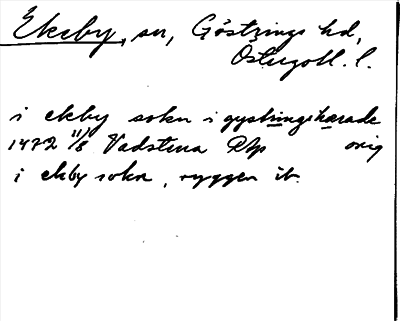 Ekeby, sn, Göstrings hd,
Östergötl. l.
i ekby sokn i gystringshærade
1472 11/8 Vadstena RAp orig
i ekby sokn, ryggen ib.